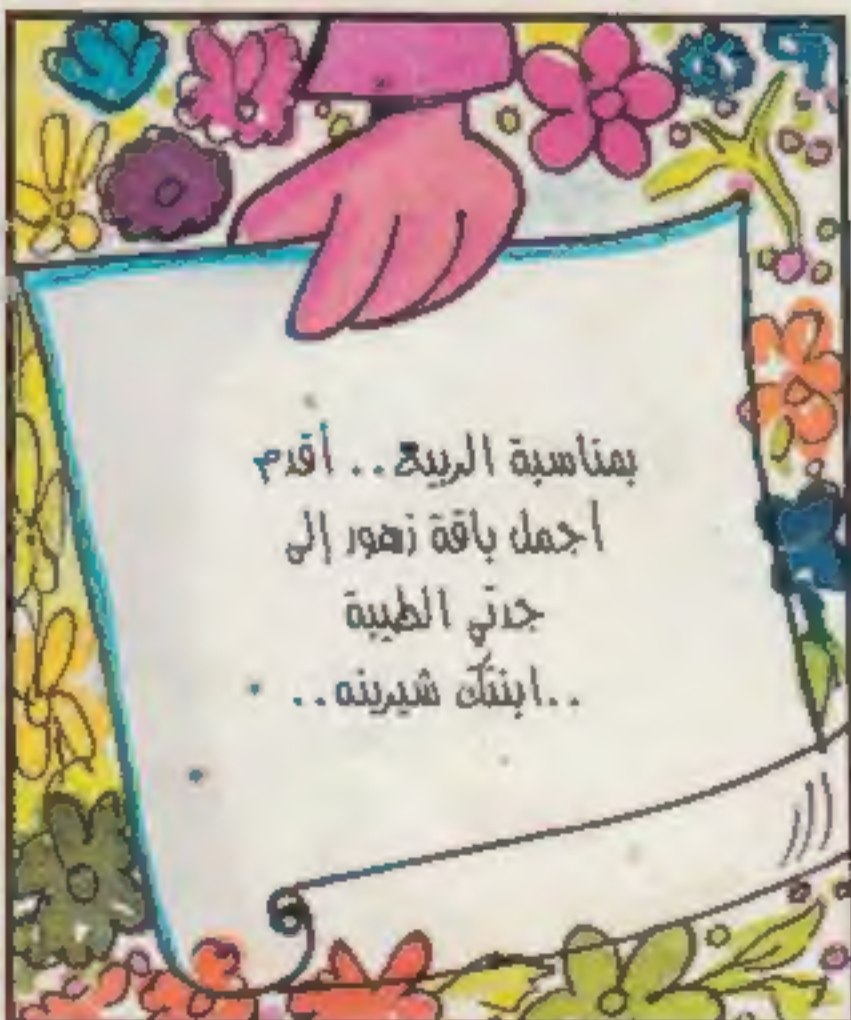 بمناسبة الربيع .. أقدم
أجمل باقة زهور إلى
جدتي الطيبة
..ابنتك شيرينه..